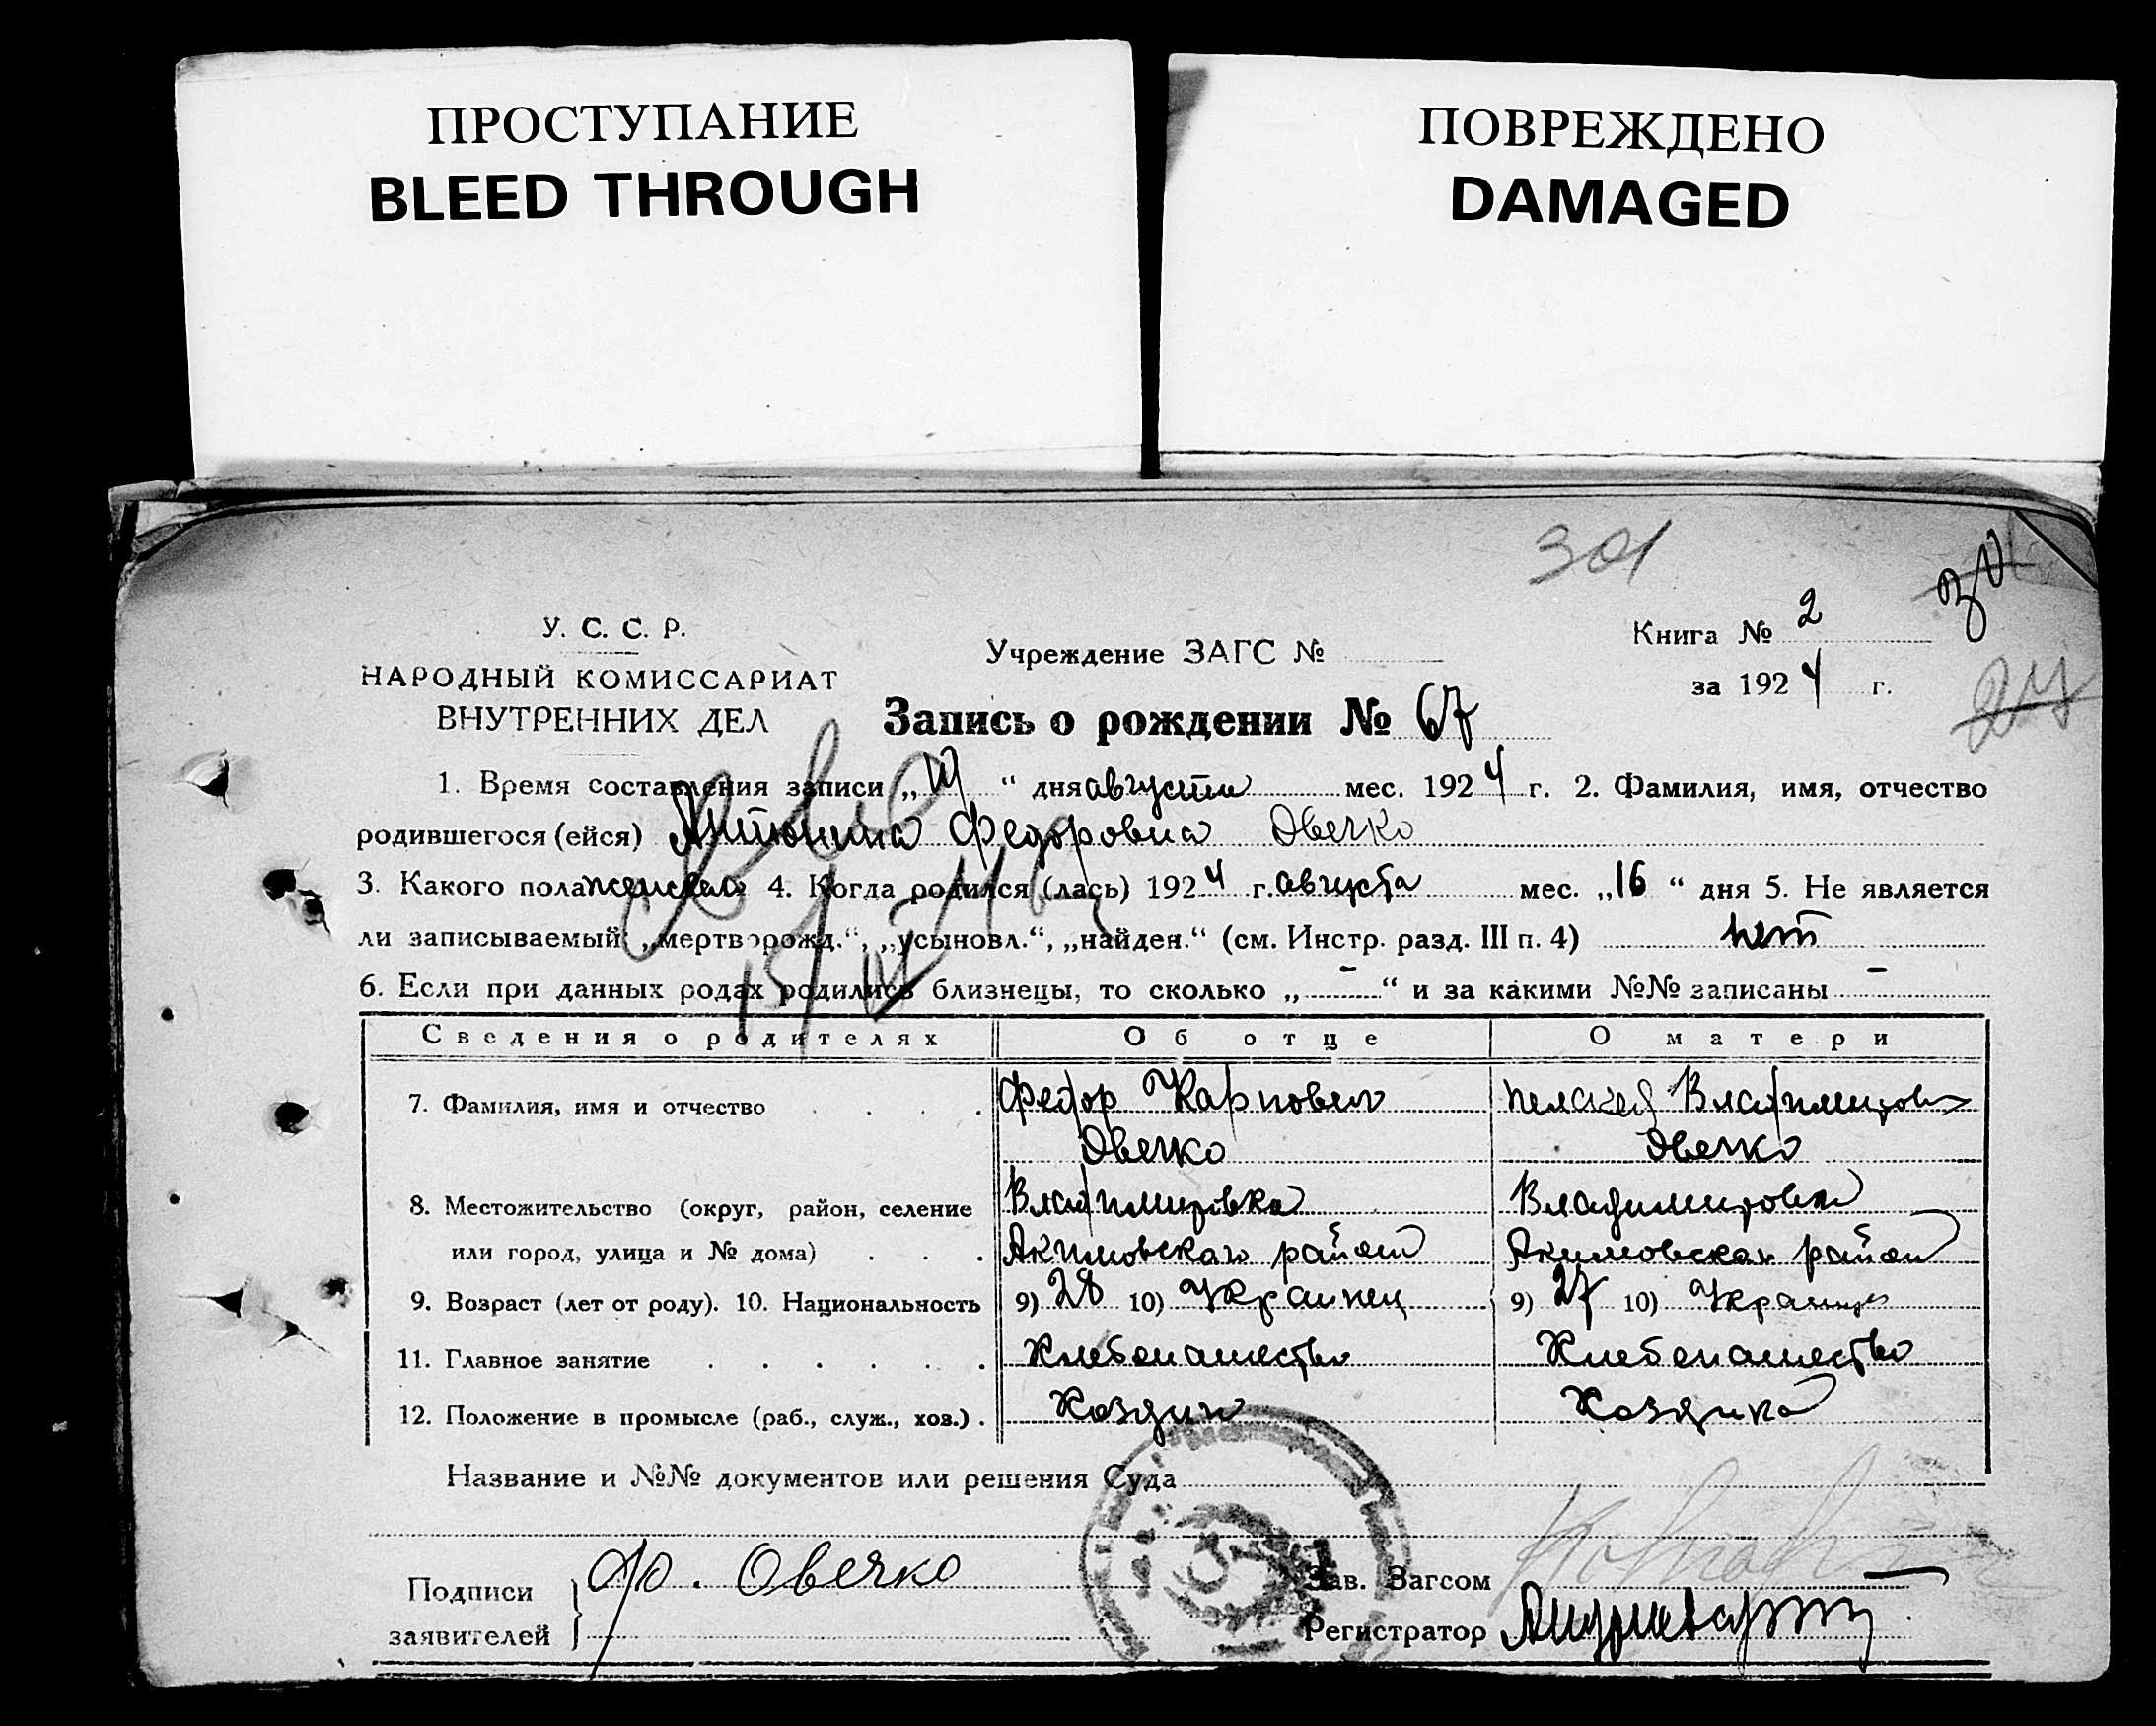 ПРОСТУПАНИЕ
BLEED THROUGH
ПОВРЕЖДЕНО
DAMAGED
301
30
24
У. С. С. Р.
НАРОДНЫЙ КОМИССАРИАТ
ВНУТРЕННИХ ДЕЛ
Учреждение ЗАГС №
Книга № 2
за 1924 г.
Запись о рождении № 67
1. Время составления записи „ “ дня августа мес. 1924 г. 2. Фамилия, имя, отчество
родившегося (ейся) Антонина Федоровна Овечко
3. Какого пола женскаго 4. Когда родился (лась) 1924 г. августа мес. „16“ дня 5. Не является
ли записываемый: „мертворожд.“, „усыновл.“, „найден.“ (см. Инстр. разд. III п. 4) нет
6. Если при данных родах родились близнецы, то сколько „ - “ и за какими №№ записаны -
Сведения о родителях Об отце О матери
7. Фамилия, имя и отчество . . . . Федор Карпович Пелагея Владимировн
Овечко Овечко
8. Местожительство (округ, район, селение Владимировка Владимировка
или город, улица и № дома) . . . Акимовскаго район Акимовскаго район
9. Возраст (лет от роду). 10. Национальность 9) 28 10) Украинец 9) 27 10) Украинца
11. Главное занятие . . . . . . Хлебопашество Хлебопашество
12. Положение в промысле (раб., служ., хоз.) . Хозяин Хозяйка
Название и №№ документов или решения Суда
Подписи
заявителей
Ф. Овечко
Зав. Загсом
Регистратор